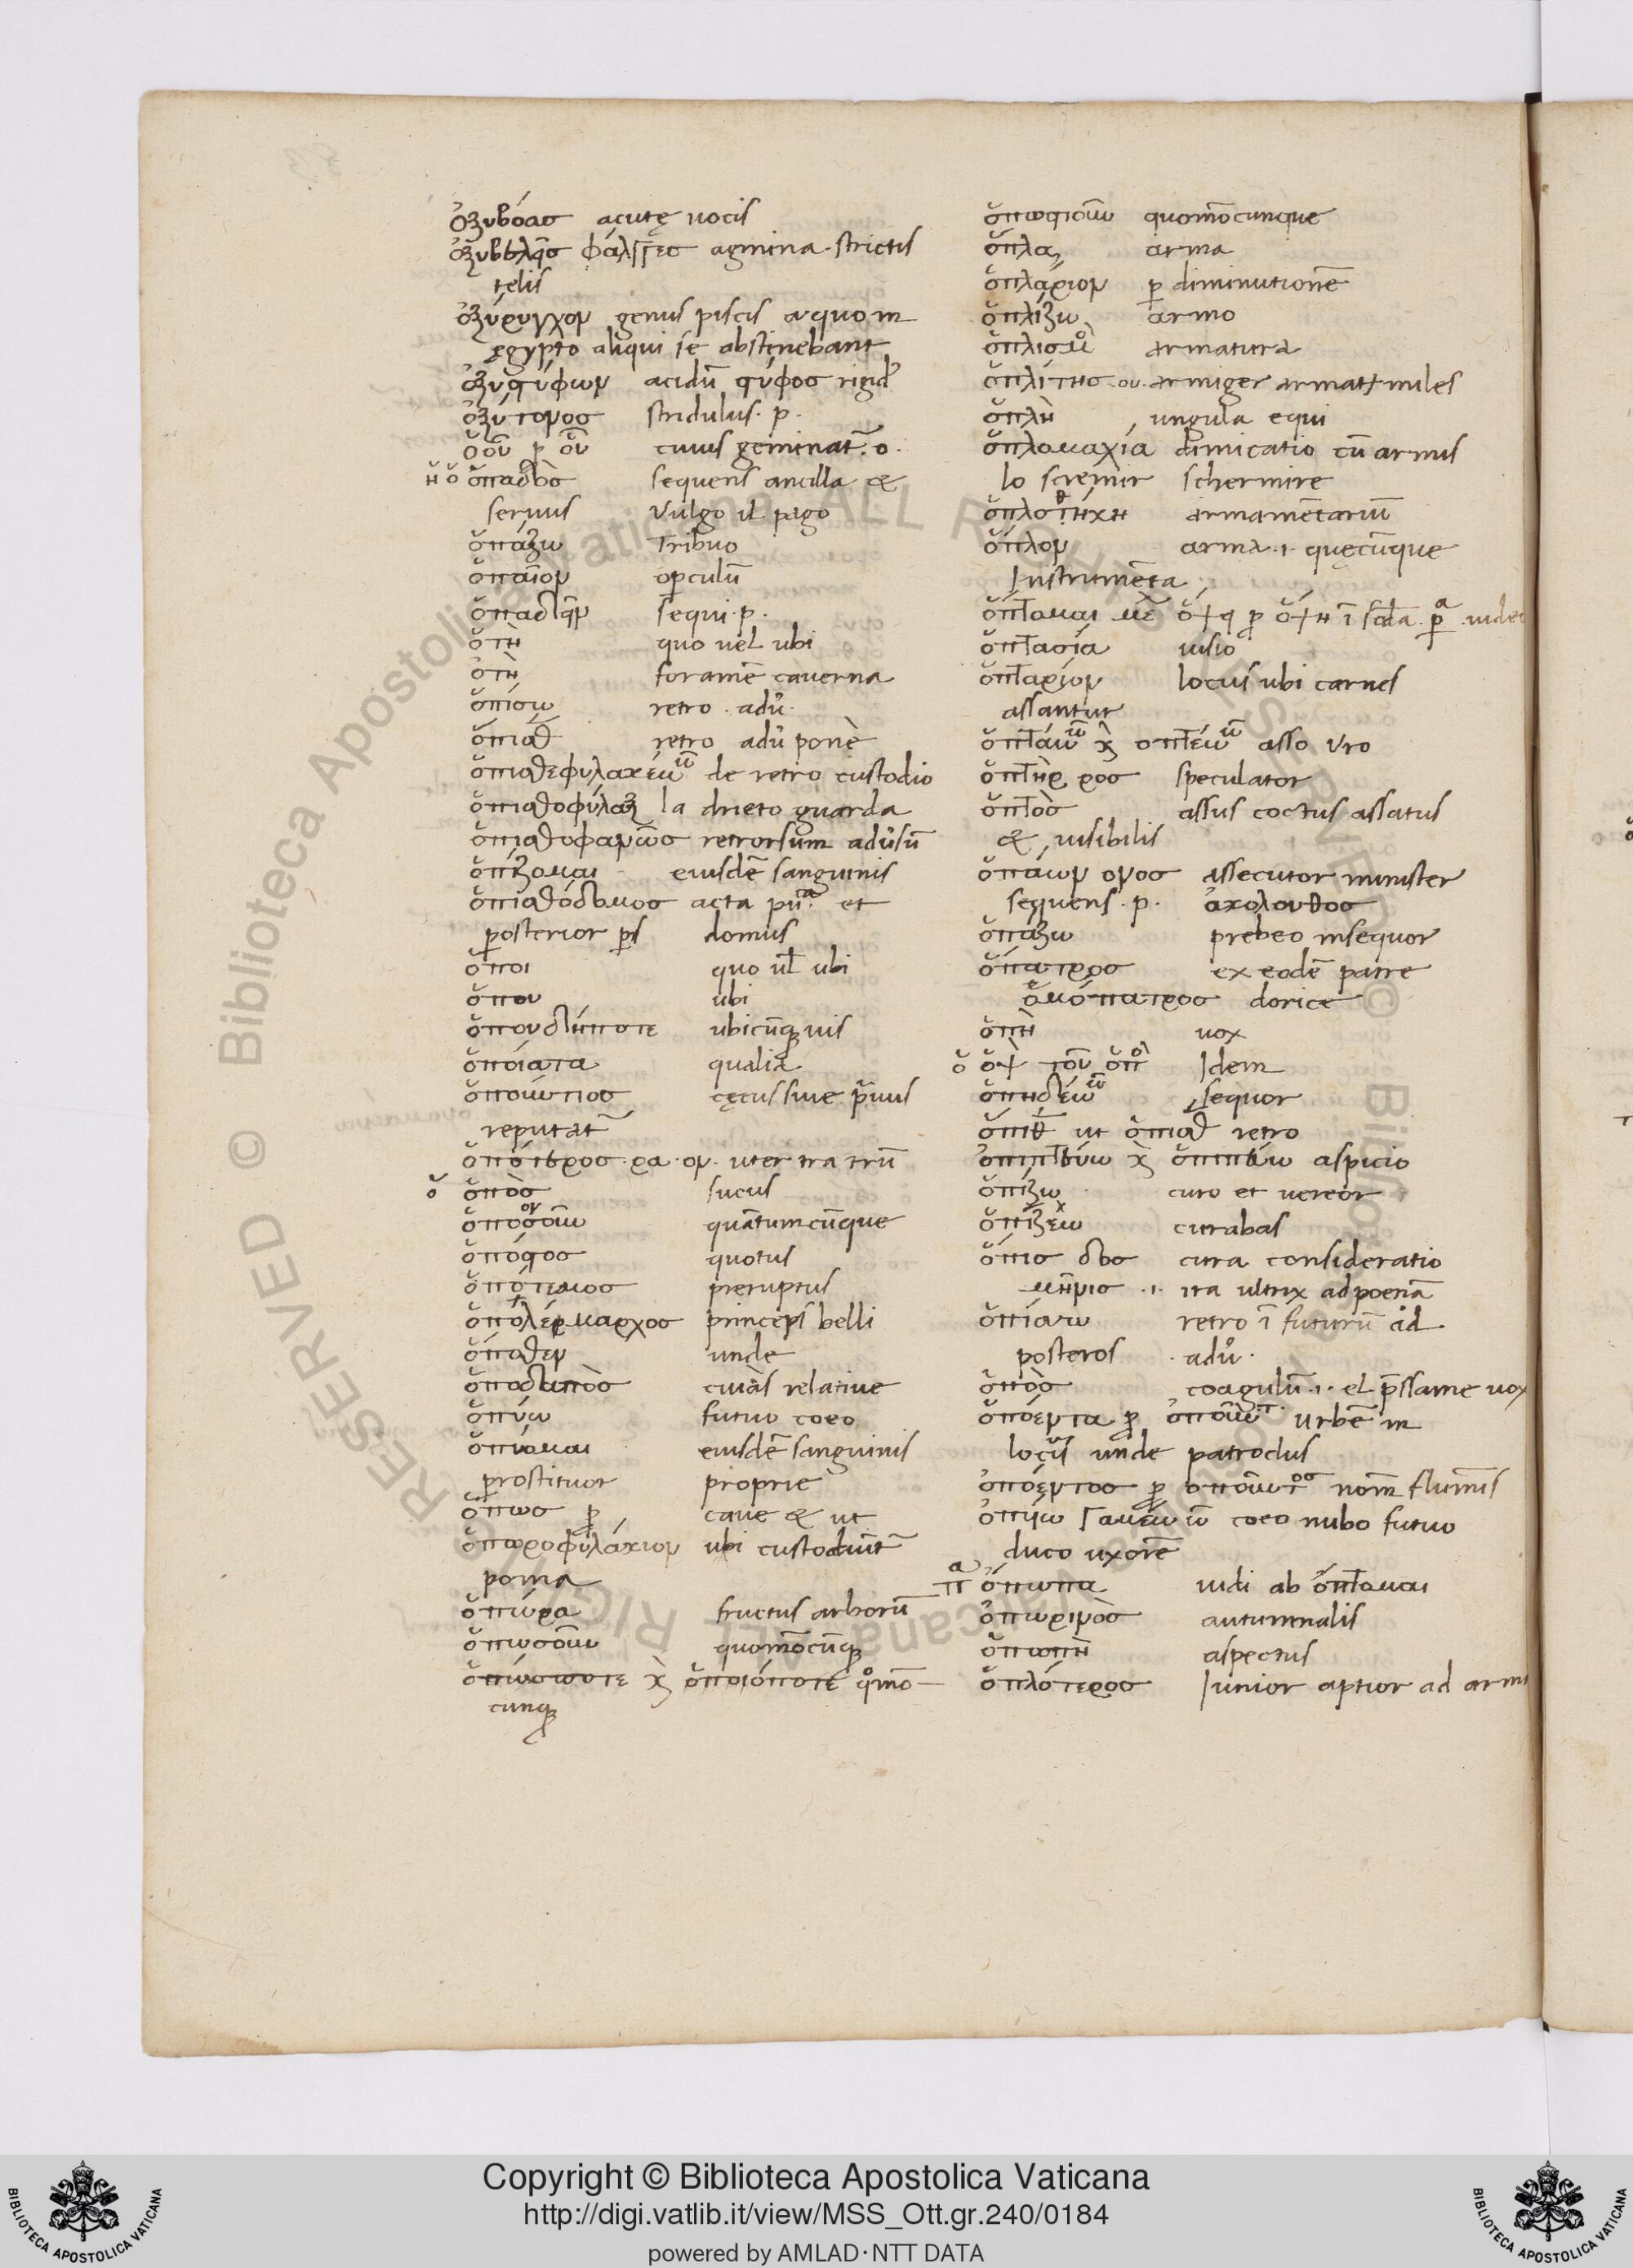 ὀξυβόασ acutę uocis
ὀξυβελεῖσ φάλαγγεσ agmina strictis
telis
ὀξύρυγχον genus piscis a quo in
ęgypto aliqui se abstinebant
acidū
ὀξύτονοσ stridulus · p ·
ὅου p οὗ cuius geminat̄ · o ·
ἡ ὁ ὀπαδὸσ sequens ancilla &
seruus Vulgo il pago
ὀπάζω Tribuo
ὀπαῖον opculū
ὀπαδεῖν sequi · p ·
ὅπη quo uel ubi
ὀπὴ foramē cauerna
ὀπίσω retro · adu ·
ὄπισθ retro adu ponè
ὀπισθεφυλακέω de retro custodio
ὀπισθοφύλαξ la drieto guarda
ὀπισθοφανῶσ retrorsum
ὀπίζομαι eiusdē sanguinis
ὀπισθόδομοσ acta et
posterior ps domus
ὅποι quo ul ubi
ὅπου ubi
ὁπουδήποτε ubicūq uis
ὁποίατα qualia
cęcus siue
reputat̄
ὁπότεροσ · ρα · ον · uter
ὁ ὀπὸσ sucus
ὁποσοῦν quātumcūque
ὁπόσοσ quotus
ὀπότομοσ preruptus
ὁπολέμαρχοσ princeps belli
ὁπόθεν unde
ὁποδαπὸσ cuiàs relatiue
ὀπύω futuo coeo
ὀπύομαι eiusdē sanguinis
prostituor proprie
ὅπωσ caue & ut
ὀπωροφυλάκιον ubi custodiūt̄
poma
ὀπώρα fructus arborū
ὁπωσοῦν quomōcūq
ὁπώσποτε κ qmo—
cunq
ὁπωστιοῦν quomōcunque
ὅπλα arma
ὁπλάριον p diminutionē
ὁπλίζω armo
ὁπλισμὸ armatura
ὁπλίτησ · ου · armiger armat miles
ὁπλὴ ungula equi
ὁπλομαχία dimicatio cū armis
lo scremir schermire
ὁπλοθήκη armamētariū
ὅπλον arma · i · quęcūque
Instrumēta
ὄπτομαι
ὀπτασία uisio
ὀπτάριον locus ubi carnes
assantur
ὀπτάω κ ὀπτέω asso Vro
ὀπτὴρ ροσ speculator
ὀπτὸσ assus coctus assatus
& uisibilis
ὀπάων ονοσ assecutor minister
sequens · p · ἀκόλουθοσ
ὀπάζω prebeo insequor
ὄπατροσ ex eodē patre
ὁμόπατροσ dorice
ὀπὴ uox
ὁ ὂψ τοῦ ὀπὸ Idem
ὀπηδέω sequor
ὄπιθ ut ὄπισθ retro
ὀπιπτεύω κ ὀπιπεύω aspicio
ὀπίζω curo et uereor
curabas
ὄπισ δοσ cura consideratio
μῆνισ · i · ira ultrix ad poenā
ὀπίσω retro ī futurū ad
posteros · adu ·
ὀπὸσ coagulū · i · el uox
ὀπόεντα p Vrbē in
locis unde patroclus
ὀπόεντοσ p nom̄ flum̄is
ὀπύω γαμέω coeo nubo futuo
duco uxorē
ὄπωπα uidi ab ὄπτομαι
ὀπωρινὸσ autumnalis
ὀπωπὴ aspectus
ὁπλότεροσ Iunior aptior ad arm
Copyright © Biblioteca Apostolica Vaticana
http://digi.vatlib.it/view/MSS_Ott.gr.240/0184
powered by AMLAD·NTT DATA
BIBLIOTECA APOSTOLICA VATICANA
BIBLIOTECA APOSTOLICA VATICANA